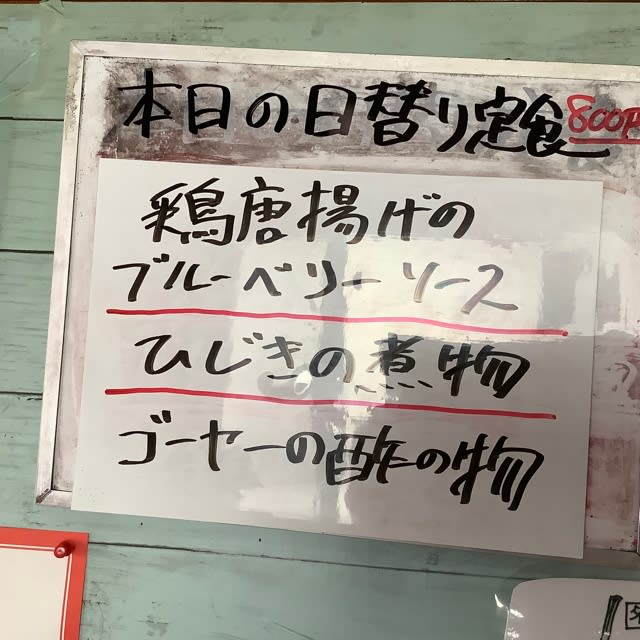 本日の日替り定食 800円
鶏唐揚げの
ブルーベリーソース
ひじきの煮物
ゴーヤーの酢の物